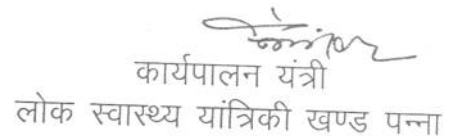 कार्यपालन यंत्री
लोक स्वास्थ्य यांत्रिकी खण्ड पन्ना